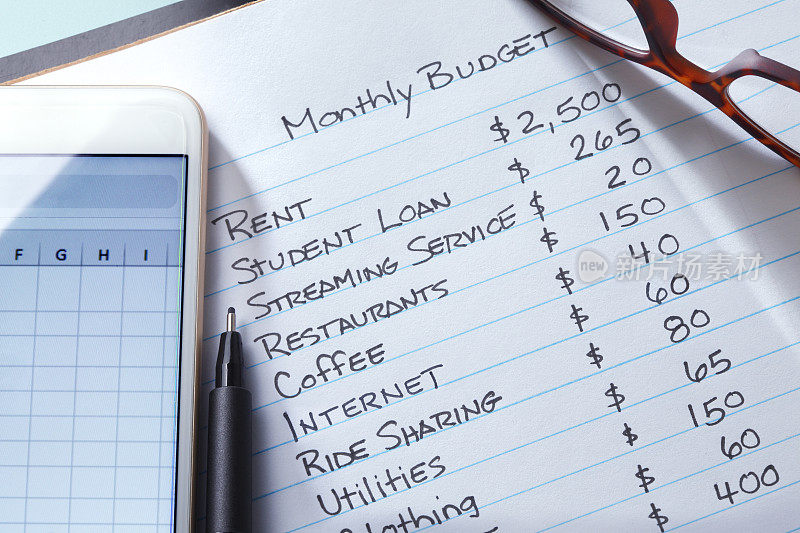 Monthly BUDGET
RENT $2,500
STUDENT LOAN $ 265
STREAMING SERVICE $ 20
RESTAURANTS $ 150
Coffee $ 40
INTERNET $ 60
RIDE SHARING $ 80
Utilities $ 65
Clothing $ 150
$ 60
$ 400
F G H I
new